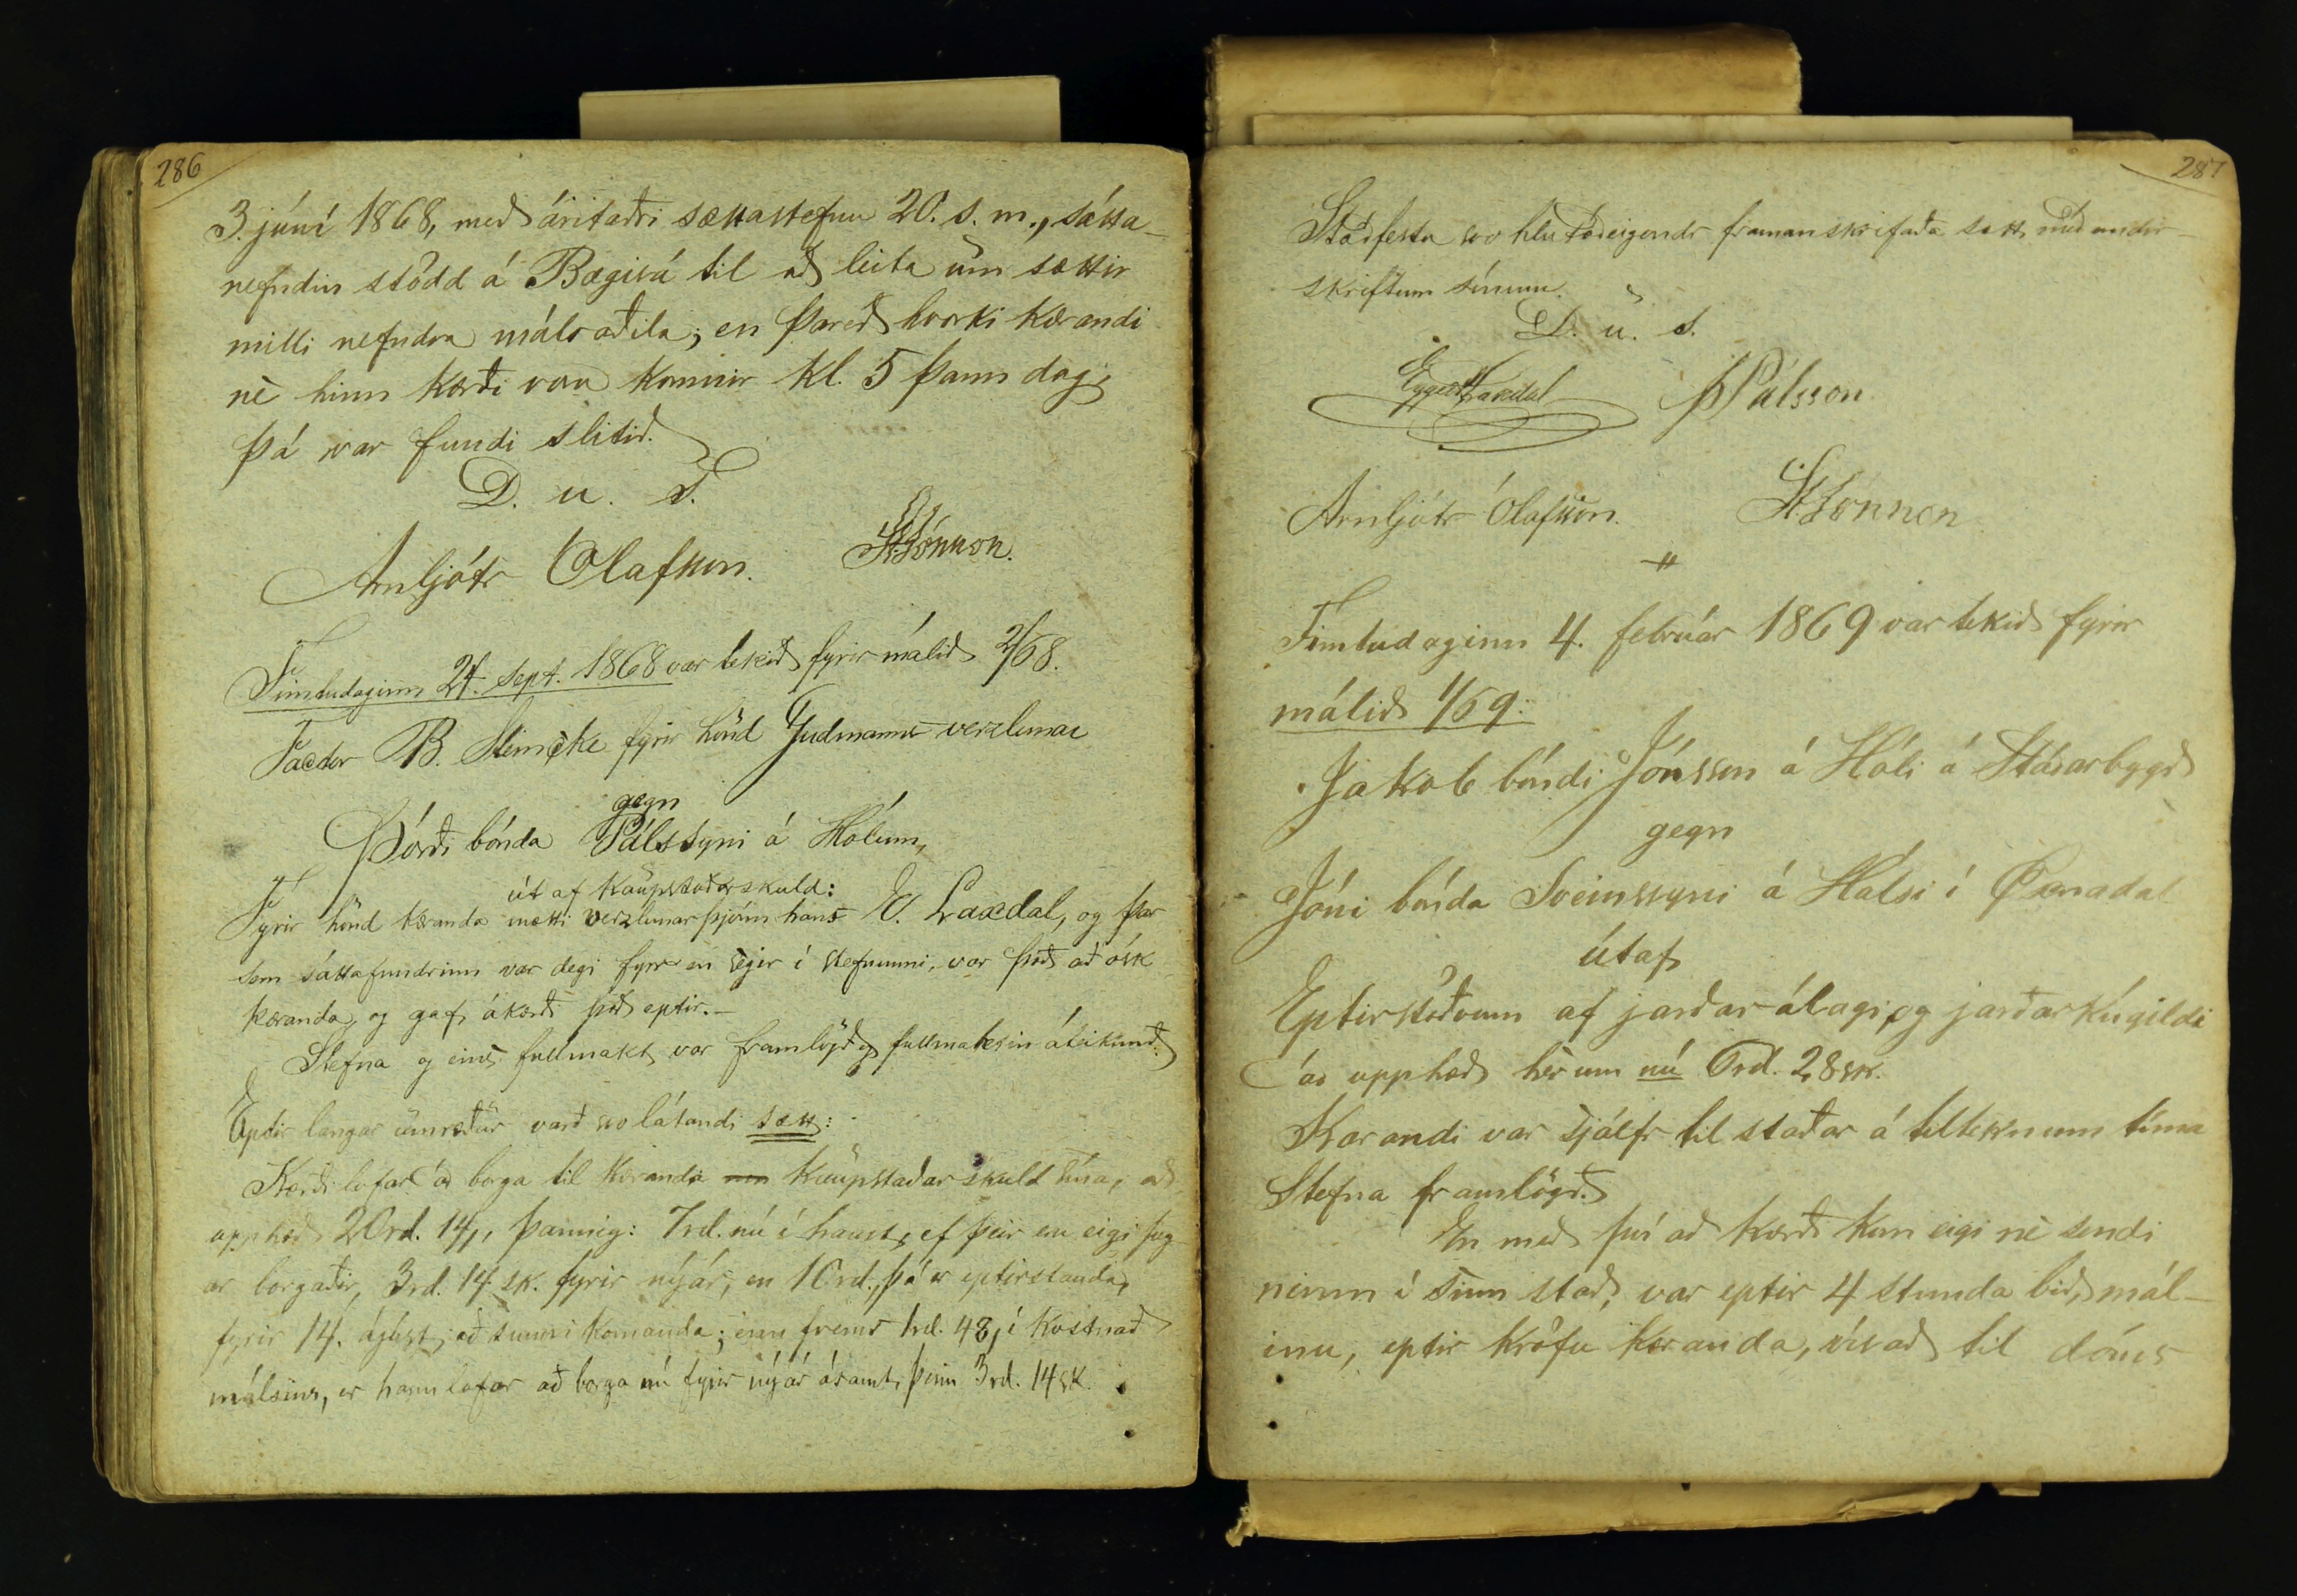 286
3. júní 1868, með áritaðri sættastefnu 20. s. m., sátta-
nefndin stödd á Bægisá til að leita um sættir
milli nefndra málsaðila; en þareð hvorki kærandi
nè hinn kærði var kominn kl. 5 þann dag,
þá var fundi slitið.
D. u. s.
Arnljótr Ólafsson. St. Jónsson.
Fimtudaginn 24. sept. 1868 var tekið fyrir málið 2/68.
Factor B. Steincke fyrir hönd Gudmanns-verzlunar
gegn
Þórði bónda Pálssyni á Hólum,
út af kaupstaðarskuld:
Fyrir hönd kæranda mætti verzlunarþjónn hans E. Laxdal, og þar
sem sáttafundrinn var degi fyrr en segir í stefnunni, var það að ósk
kæranda, og gaf ákærði það eptir.-
Stefna og eins fullmakt var framlögð og fullmaktin áteiknuð.
Eptir langar umræður varð svo látandi sætt:
Kærði lofar að borga til kæranda kaupstaðar skuld sína, að
upphæð 20rd. 14, þannig: 7rd. nú í haust, ef þeir eru eigi þeg
ar borgaðir, 3rd. 14 sk. fyrir nýár, en 10rd., þá er eptirstanda,
fyrir 14. ágúst, að sumri komanda; enn fremr 1rd. 48, í kostnað
málsins, er hann lofar að borga nú fyrir nýár ásamt þeim 3rd. 14sk.
287
Staðfesta svo hlutaðeigendr framanskrifaða sætt með undir-
skriftum sínum.
D. u. s.
Eggert Laxdal Þ Pálsson
Arnljótr Ólafsson. St. Jónsson
"
Fimtudaginn 4. febrúar 1869 var tekið fyrir
málið 1/69:
Jakob bóndi Jónsson á Hóli á Staðarbyggð
gegn
Jóni bónda Sveinssyni á Hálsi í Öxnadal
útaf
Eptirstöðvum af jarðar-álagi og jarðarkúgildi
að upphæð hèr um nú 6rd. 28sk.
Kærandi var sjálfr til staðar á tilteknum tíma
Stefna framlögð.
En með því að kærði kom eigi nè sendi
neinn í sinn stað, var eptir 4 stunda bið, mál-
inu, eptir kröfu kæranda, vísað til dóms